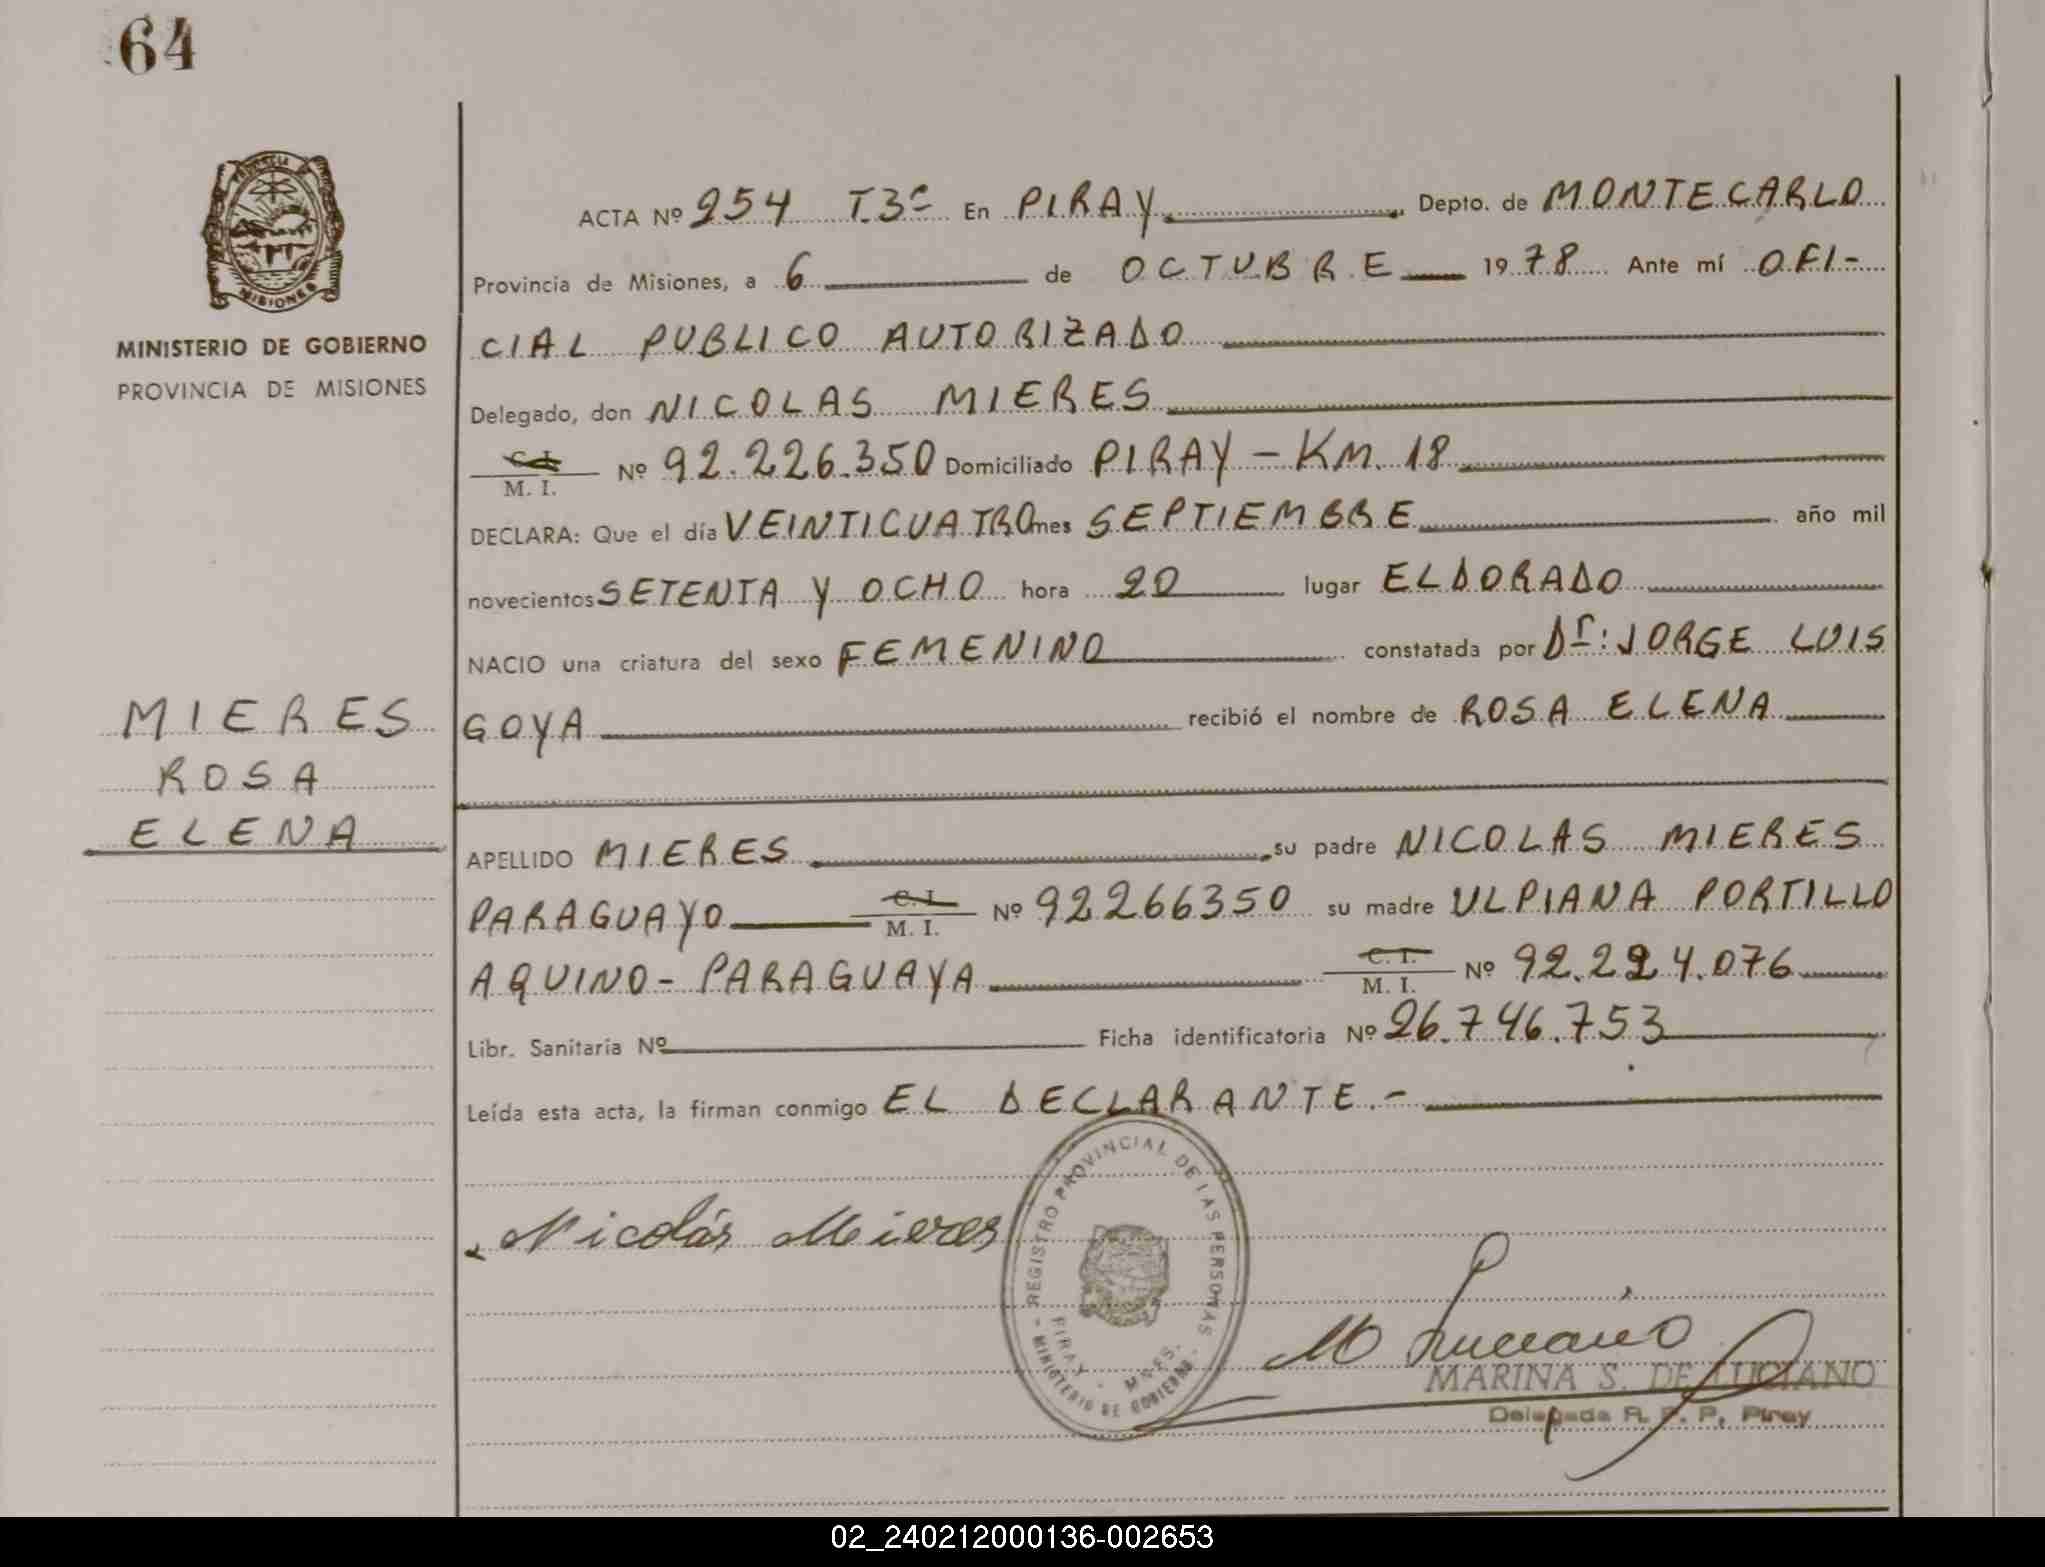 64
PROVINCIA
MISIONES
MINISTERIO DE GOBIERNO
PROVINCIA DE MISIONES
ACTA Nº 254 T.3º En PIRAY Depto. de MONTECARLO
Provincia de Misiones, a 6 de OCTUBRE 1978 Ante mí OFI-
CIAL PUBLICO AUTORIZADO
Delegado, don NICOLAS MIERES
C. I.
M. I. Nº 92.226.350 Domiciliado PIRAY - KM. 18
DECLARA: Que el día VEINTICUATRO mes SEPTIEMBRE año mil
novecientos SETENTA Y OCHO hora 20 lugar ELDORADO
NACIO una criatura del sexo FEMENINO constatada por Dr: JORGE LUIS
GOYA recibió el nombre de ROSA ELENA
MIERES
ROSA
ELENA
APELLIDO MIERES su padre NICOLAS MIERES
PARAGUAYO C. I. M. I. Nº 92266350 su madre ULPIANA PORTILLO
AQUINO - PARAGUAYA C. I. M. I. Nº 92.224.076
Libr. Sanitaria Nº Ficha identificatoria Nº 26.746.753
Leída esta acta, la firman conmigo EL DECLARANTE.-
REGISTRO PROVINCIAL DE LAS PERSONAS
PIRAY - MNES.
MINISTERIO DE GOBIERNO
Nicolás Mieres
M Luciano
MARINA S. DE LUCIANO
Delegada R. P. P. Piray
02_240212000136-002653